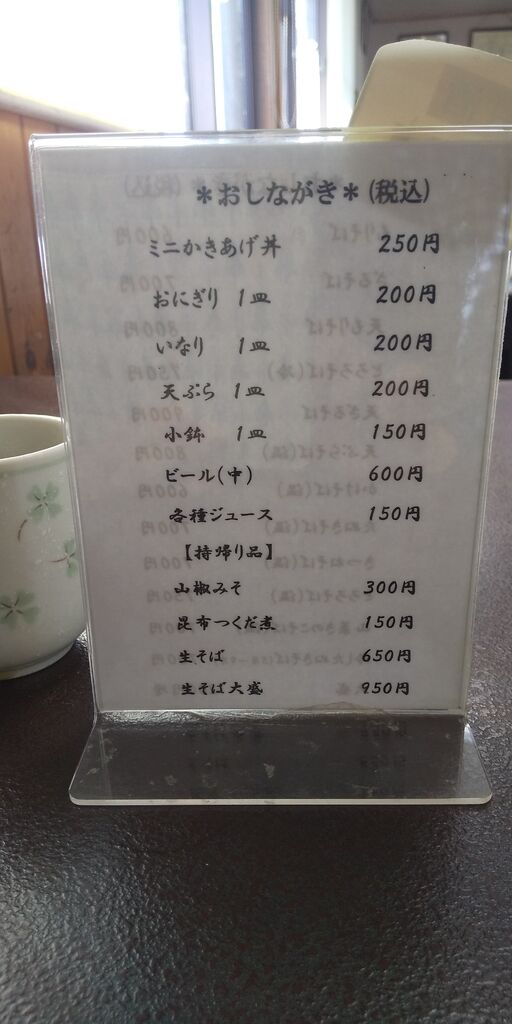 ＊おしながき＊(税込)
ミニかきあげ丼 250円
おにぎり 1皿 200円
いなり 1皿 200円
天ぷら 1皿 200円
小鉢 1皿 150円
ビール(中) 600円
各種ジュース 150円
【持帰り品】
山椒みそ 300円
昆布つくだ煮 150円
生そば 650円
生そば大盛 950円